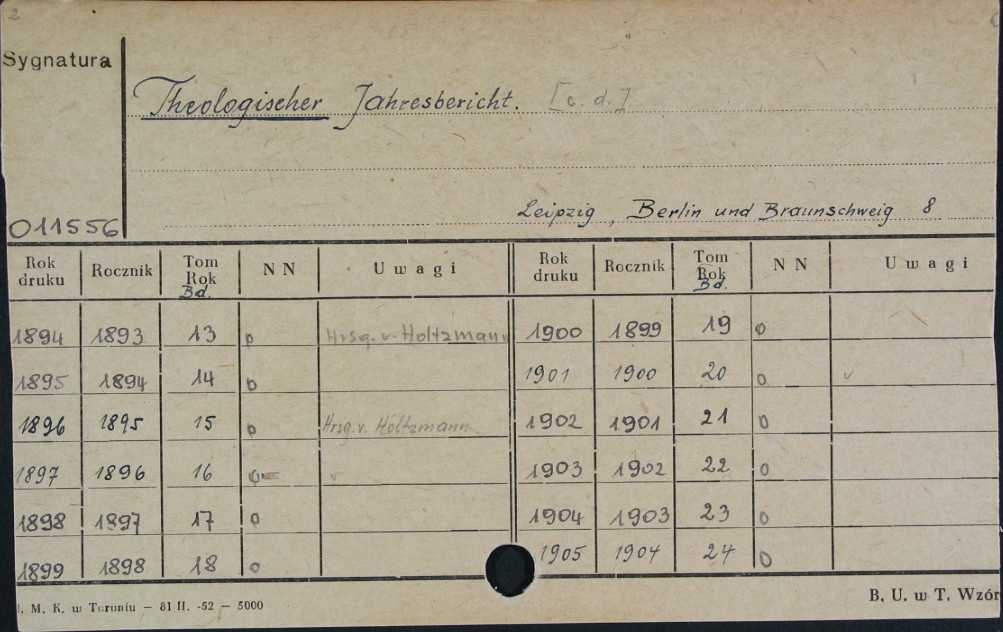 2
Sygnatura
Theologischer Jahresbericht. [c. d.]
Leipzig, Berlin und Braunschweig 8
011556
Rok druku Rocznik Tom Rok Bd. NN Uwagi Rok druku Rocznik Tom Rok Bd. NN Uwagi
1894 1893 13 o Hrsg. v. Holtzmann 1900 1899 19 o
1895 1894 14 o 1901 1900 20 o v
1896 1895 15 o Hrsg. v. Holtzmann 1902 1901 21 o
1897 1896 16 o v 1903 1902 22 o
1898 1897 17 o 1904 1903 23 o
1899 1898 18 o 1905 1904 24 o
M. K. w Toruniu — 81 II. -52 — 5000
B. U. w T. Wzór